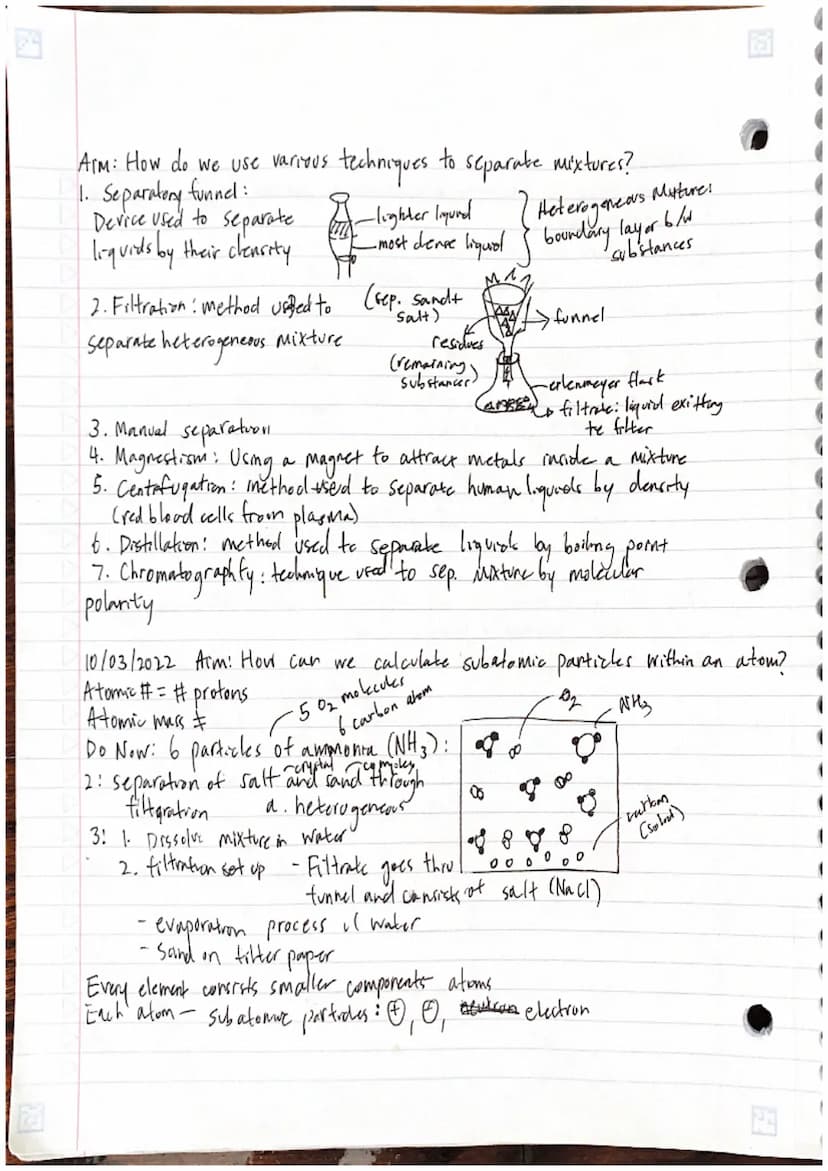 Aim: How do we use various techniques to separate mixtures?
1. Separatory funnel:
Device used to separate
liquids by their density
lighter liquid
most dense liquid
Heterogeneous Mixture:
boundary layer b/w
substances
2. Filtration: method used to
separate heterogeneous mixture
(sep. sand+
salt)
residues
(remaining
substances)
funnel
erlenmeyer flask
filtrate: liquid exitting
te filter
3. Manual separation
4. Magnestism: Using a magnet to attract metals inside a mixture
5. Centrifugation: method used to separate human liquids by density
(red blood cells from plasma)
6. Distillation: method used to separate liquids by boiling point
7. Chromatographfy: technique used to sep. mixture by molecular
polarity
10/03/2022 Aim: How can we calculate subatomic particles within an atom?
Atomic # = # protons
Atomic mass
5 O2 molecules
6 carbon atom
Do Now: 6 particles of ammonia (NH3):
O2
NH3
carbon
(solid)
crystal
2: separation of salt and sand through
filtration a. heterogeneous
3: 1. Dissolve mixture in water
2. filtration set up - Filtrate goes thru
funnel and consists of salt (NaCl)
- evaporation process w/ water
- Sand on filter paper
Every element consists smaller components atoms
Each atom — subatomic particles: +, -, neutron electron